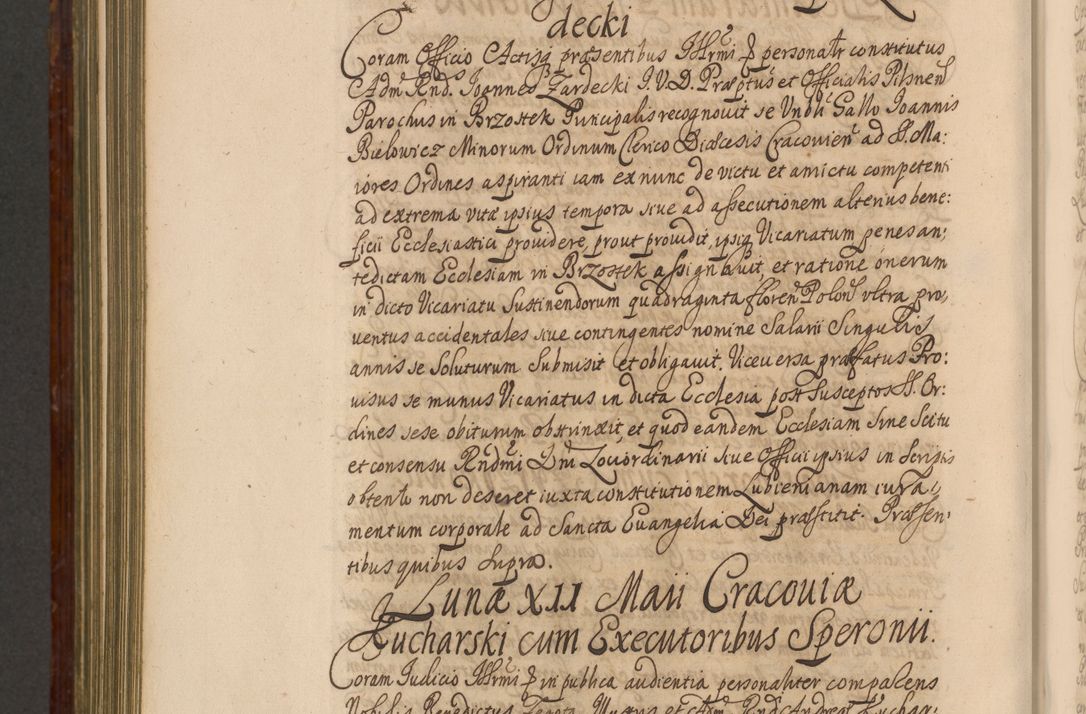 decki
Coram Officio Actisq̨ præsentibus Illrmi ꝑ personalr constitutus
Adm Rnd.s Joannes Zardecki J.V.D. Præptus et Officialis Pilsnen
Parochus in Brzostek Principalis recognouit se Vnbli Gallo Joannis
Bielowicz Minorum Ordinum Clerico Diæcesis Cracouien ad S. Ma:
iores Ordines aspiranti iam ex nunc de victu et amictu competenti
ad extrema vitæ ipsius tempora siue ad assecutionem alterius bene:
ficii Ecclesiastici prouidere, prout prouidit, ipsiq̨ Vicariatum penes an;
tedictam Ecclesiam in Brzostek assignauit, et ratione onerum
in dicto Vicariatu Sustinendorum quadraginta floren Polon vltra pro,
uentus accidentales siue contingentes nomine Salarii Singulis
annis se Soluturum Submisit et obligauit. Viceuersa præfatus Pro:
uisus se munus Vicariatus in dicta Ecclesia post Susceptos SS. Or:
dines sese obiturum obstrinxit, et quod eandem Ecclesiam Sine Scitu
et consensu Rndmi Dni Lociordinarii siue Officii ipsius in Scriptis
obtento non deseret iuxta constitutionem Lubienianam iura,
mentum corporale ad Sancta Euangelia Dei præstitit. Præsen,
tibus quibus Supra.
Lunæ XII Maii Cracouiæ
Kucharski cum Executoribus Speronii.
Coram Iudicio Illrmi ꝑ in publica audientia personaliter comparens
Nobilis Benedictus